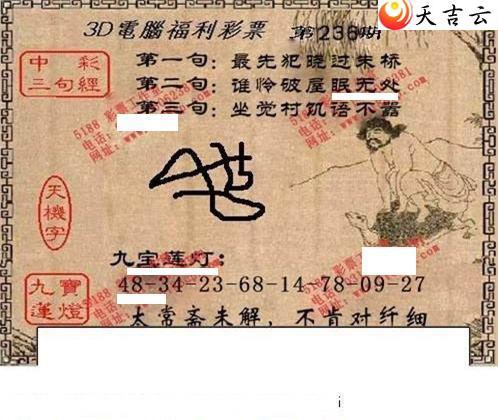 天吉云
3D電腦福利彩票 第236期
中彩
三句經
第一句：最先犯晓过朱桥
第二句：谁怜破屋眠无处
第三句：坐觉村饥语不嚣
天機字
九宝莲灯：
九寶蓮燈
48-34-23-68-14-78-09-27
太常斋未解，不肯对纤细
i